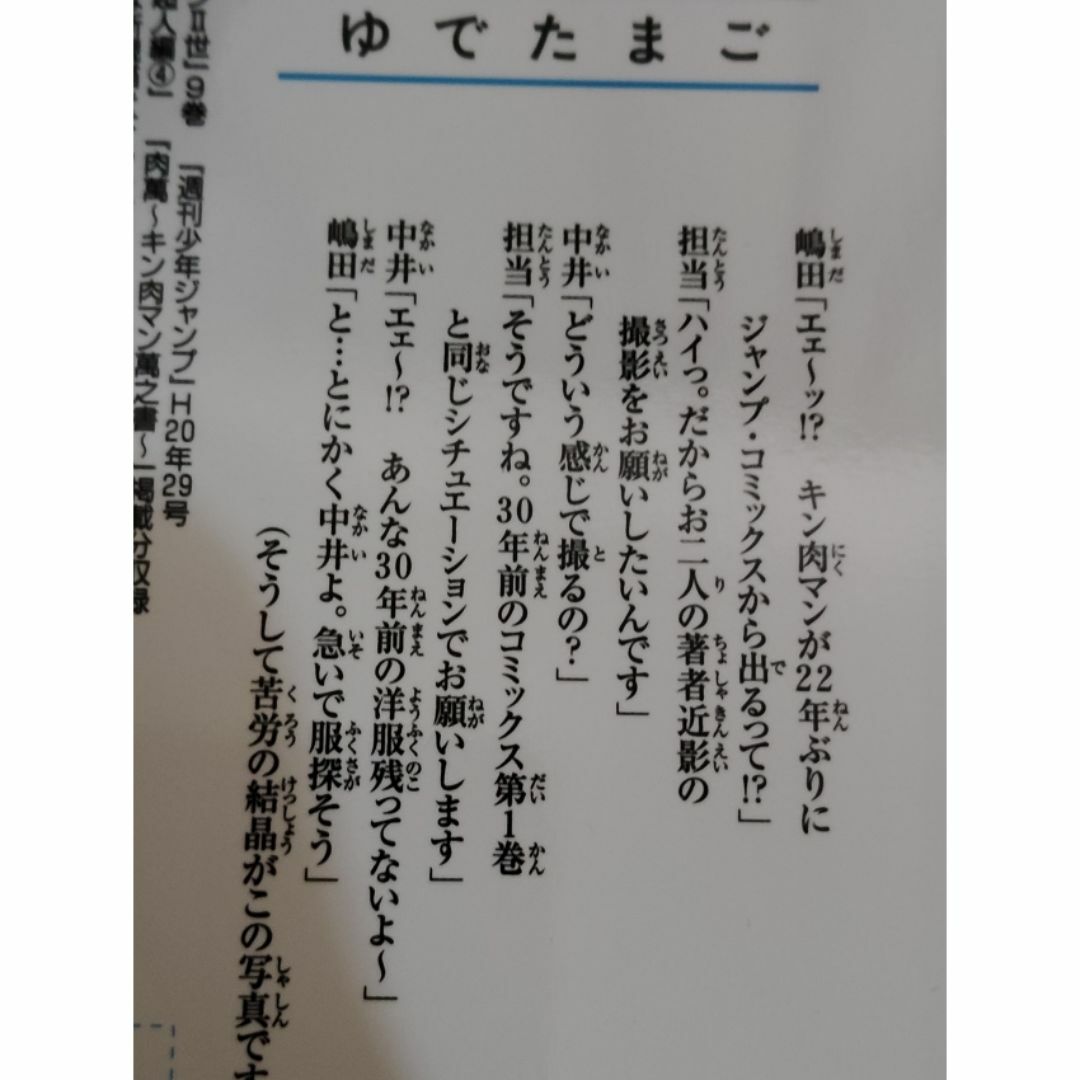 ゆでたまご
嶋田「エェ～ッ!? キン肉マンが22年ぶりに
ジャンプ・コミックスから出るって!?」
担当「ハイっ。だからお二人の著者近影の
撮影をお願いしたいんです」
中井「どういう感じで撮るの?」
担当「そうですね。30年前のコミックス第1巻
と同じシチュエーションでお願いします」
中井「エェ～!? あんな30年前の洋服残ってないよ～」
嶋田「と…とにかく中井よ。急いで服探そう」
(そうして苦労の結晶がこの写真です
Ⅱ世」9巻 「週刊少年ジャンプ」H20年29号
人編④」 「肉萬～キン肉マン萬之書～」掲載分収録